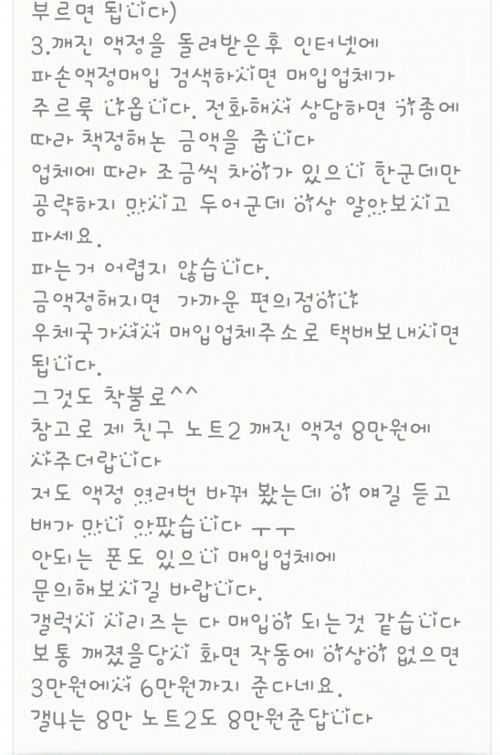 부르면 됩니다)
3.깨진 액정을 돌려받은후 인터넷에
파손액정매입 검색하시면 매입업체가
주르륵 나옵니다. 전화해서 상담하면 기종에
따라 책정해논 금액을 줍니다
업체에 따라 조금씩 차이가 있으니 한군데만
공략하지 마시고 두어군데 이상 알아보시고
파세요.
파는거 어렵지 않습니다.
금액정해지면 가까운 편의점이나
우체국가셔서 매입업체주소로 택배보내시면
됩니다.
그것도 착불로^^
참고로 제 친구 노트2 깨진 액정 8만원에
사주더랍니다
저도 액정 여러번 바꿔 봤는데 이 얘길 듣고
배가 아픕니다 ㅜㅜ
안되는 폰도 있으니 매입업체에
문의해보시길 바랍니다.
갤럭시 시리즈는 다 매입이 되는것 같습니다
보통 깨졌을당시 화면 작동에 이상이 없으면
3만원에서 6만원까지 준다네요.
갤4는 8만 노트2도 8만원준답니다